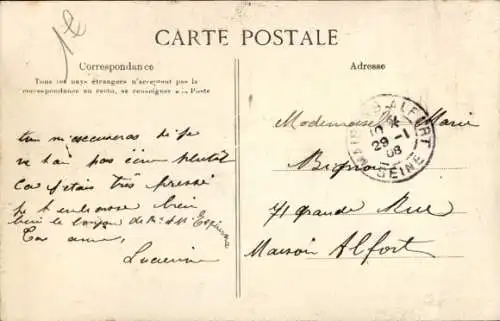 1e
CARTE POSTALE
Correspondance
Tous les pays étrangers n'acceptent pas la
correspondance au recto, se renseigner à la Poste
Adresse
tu m'excuseras di je
ne t'ai pas écrit plutôt
car j'etais très pressé
je t'embrasse bien
bien le bonjour de Mr & Mme
Ton amie,
Lucienne
MAISONS-ALFORT
10
29 -1
08
SEINE
Mademoiselle Marie
71 grande Rue
Maison Alfort